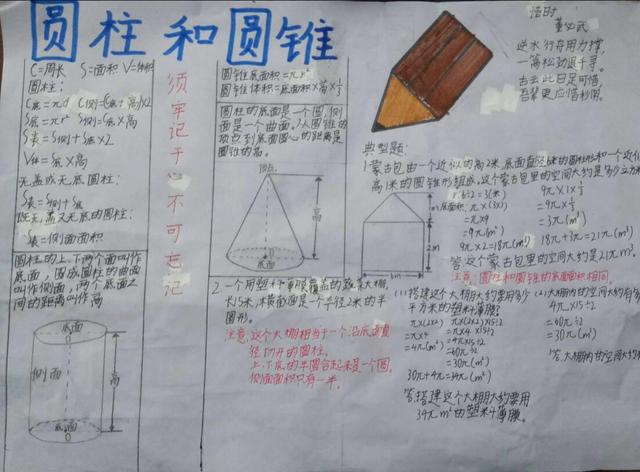 圆柱和圆锥
C=周长 S=面积 V=体积
圆柱:
C底=πd
S底=πr²
S表=S侧+S底×2
V柱=S底×高
无盖或无底圆柱:
S表=S侧+S底
既无盖又无底的圆柱:
S表=侧面面积
圆柱的上、下两个面叫作
底面,围成圆柱的曲面
叫作侧面,两个底面之
间的距离叫作高
底面
侧面
高
底面
O
须牢记于心不可忘记
圆锥底面积=πr²
圆锥体积=底面积×高×1/3
圆柱的底面是一个圆,侧
面是一个曲面。从圆锥的
顶点到底面圆心的距离是
圆锥的高。
顶点
高
底面
O
2.一个用塑料薄膜覆盖的蔬菜大棚,
长15米,横截面是一个半径2米的半
圆形。
注意,这个大棚相当于一个沿底面直
径切开的圆柱。
上、下底的半圆合起来是一个圆,
侧面面积只有一半。
董必武
逆水行舟用力撑,
一篙松劲退千寻。
古云此日足可惜,
吾辈更应惜秒阴。
典型题:
1.蒙古包由一个近似的高2米,底面直径6米的圆柱形和一个近似
高1米的圆锥形组成,这个蒙古包里的空间大约是多少立方米
6÷2=3(米)
9π×1×1/3
=9π×1/3
=3π(m³)
=π×9
=9π(m²)
9π×2=18π(m³)
18π+3π=21π(m³)
2m
6m
答:这个蒙古包里的空间大约是21πm³。
注意,圆柱和圆锥的底面面积相同。
(1)搭建这个大棚大约要用多少
平方米的塑料薄膜?
π×(2×2)
=π×4
=4π(m²)
π×(2×2)×15÷2
=π×4×15÷2
=4π×15÷2
=60π÷2
=30π(m²)
30π+4π=34π(m²)
答:搭建这个大棚大约要用
34πm²的塑料薄膜。
(2)大棚内的空间大约有多
4π×15÷2
=60π÷2
=30π(m³)
答:大棚内的空间大约